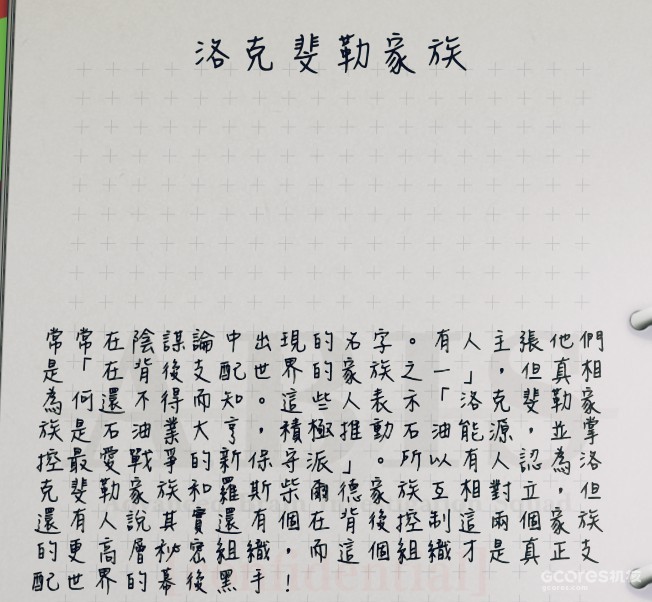 洛克斐勒家族
常常在陰謀論中出現的名字。有人主張他們
是「在背後支配世界的家族之一」,但真相
為何還不得而知。這些人表示「洛克斐勒家
族是石油業大亨,積極推動石油能源,並掌
控最愛戰爭的新保守派」。所以有人認為,洛
克斐勒家族和羅斯柴爾德家族互相對立,但
還有人說其實還有個在背後控制這兩個家族
的更高層秘密組織,而這個組織才是真正支
配世界的幕後黑手!
GCORES机核
gcores.com